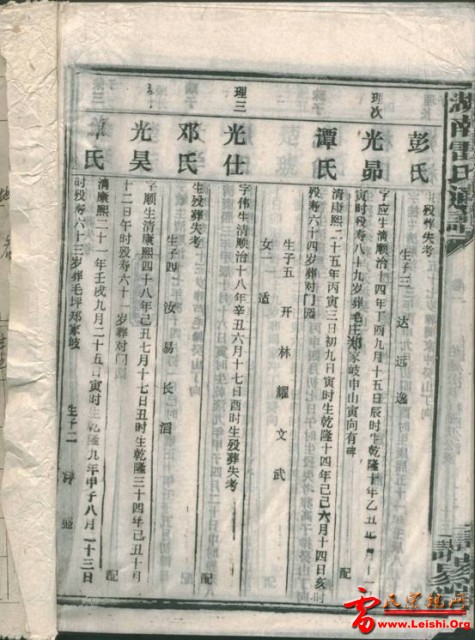 湖南雷氏通谱
彭氏
殁葬失考
生子三 达 远 逸
配
理次
光昴
字应生清顺治十四年丁酉九月十五日辰时生殁乾隆十年乙丑
寅时殁寿八十九岁葬毛庄郑家岐申山寅向有碑
谭氏
清康熙二十五年丙寅三日初九日寅时生乾隆十四年己己六月十四日亥时
殁寿六十四岁葬对门
生子五 开 林 耀 文 武
女一 适
配
理三
光仕
字伟生清顺治十八年辛丑六月十七日酉时生殁葬失考
邓氏
生殁葬失考
生子四 汝 易 长 滔
配
光昊
字顺生清康熙四十八年己丑七月十七日丑时生乾隆三十四年己丑十月
十二日午时殁寿六十一岁葬对门
配
氏
清康熙二十一年壬戌九月二十五日寅时生乾隆九年甲子八月二十三日
时殁寿六十三岁葬毛坪郑家岐
生子二
雷氏宗亲网
www.Leishi.Org